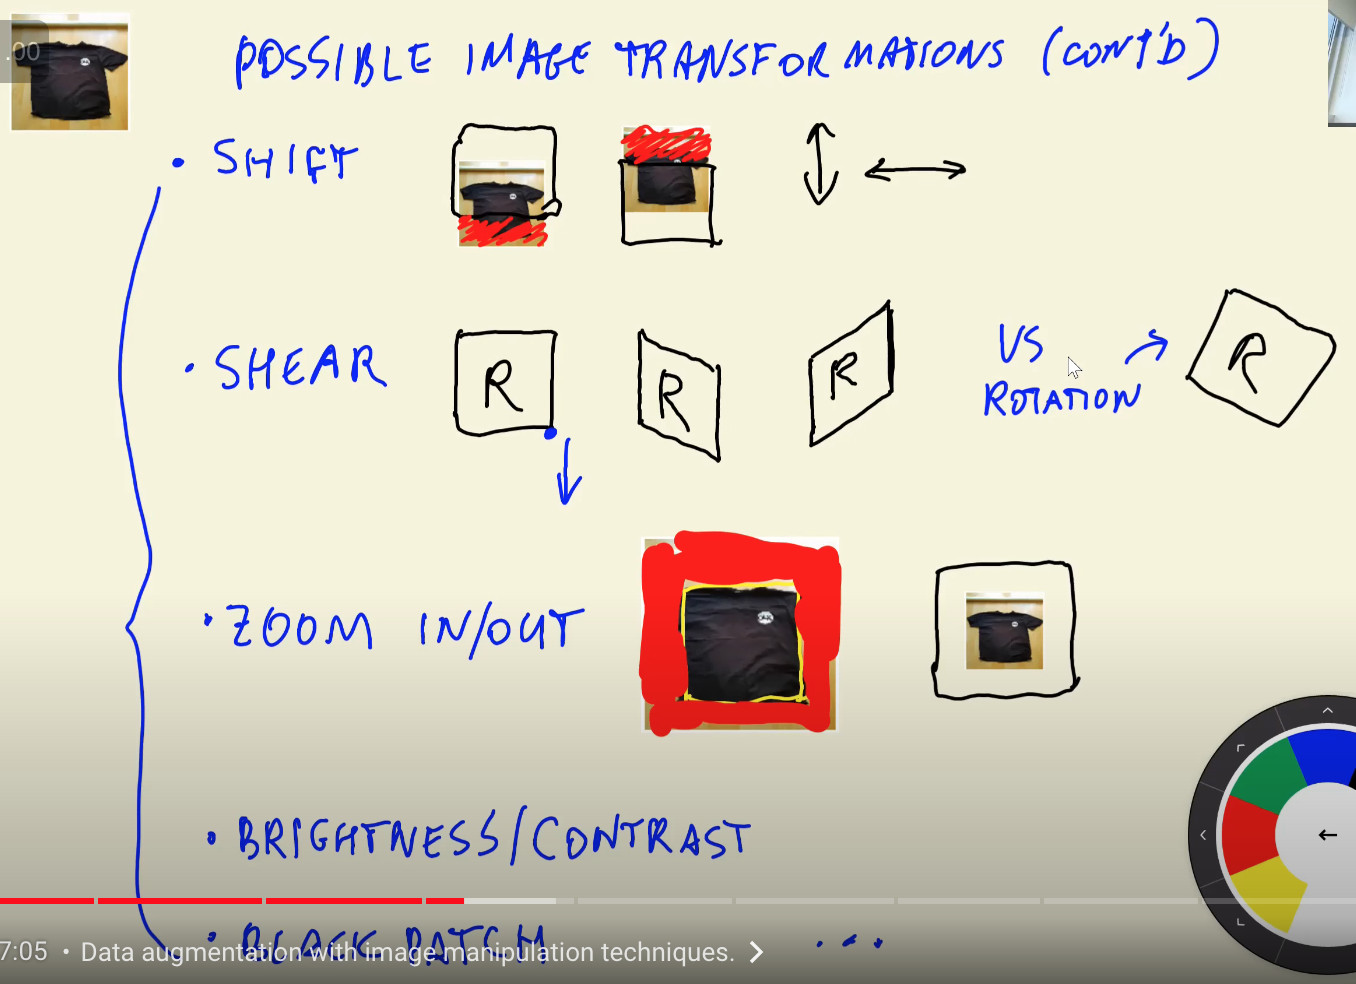 .00
POSSIBLE IMAGE TRANSFORMATIONS (CONT'D)
• SHIFT
• SHEAR
R
R
R
VS ROTATION
R
• ZOOM IN/OUT
• BRIGHTNESS/CONTRAST
• BLACK PATCH ...
7:05 • Data augmentation with image manipulation techniques.